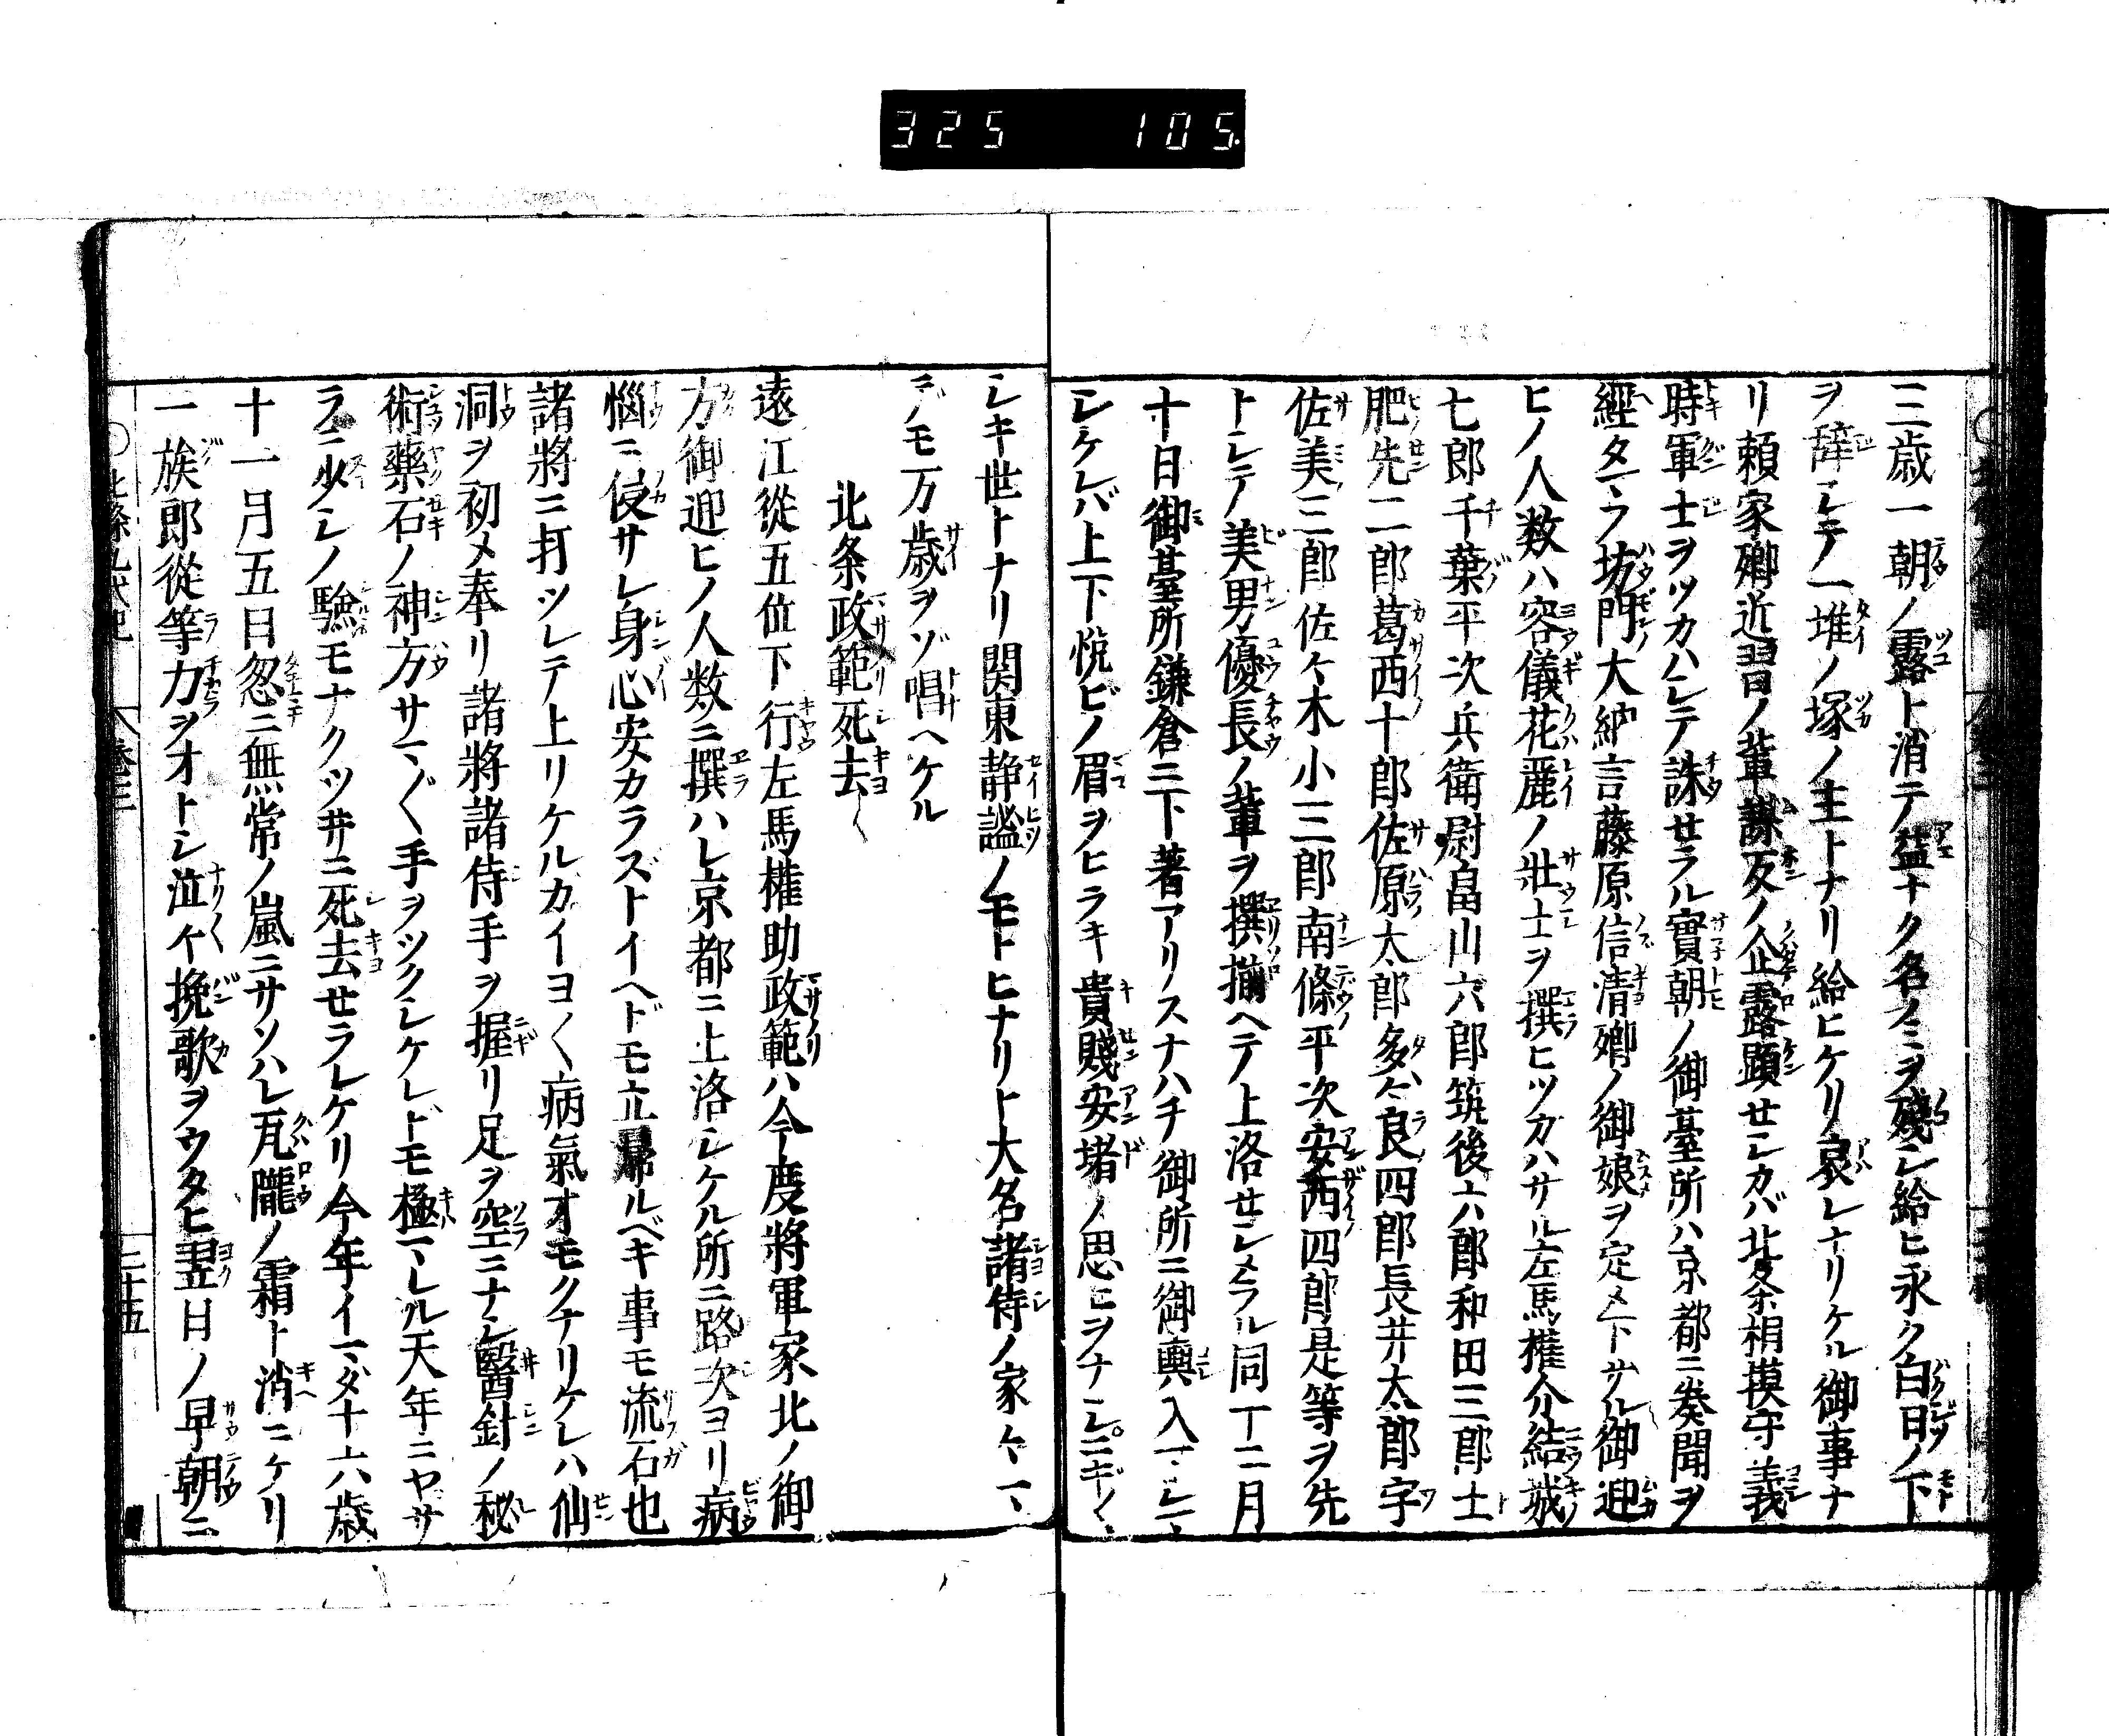 325 105
三歳一朝ノ露ト消テ益ナク名ノミヲ殘シ給ヒ永ク白日ノ下
ヲ辞シテ一堆ノ塚ノ主トナリ給ヒケリ哀レナリケル御事ナ
リ頼家卿近習ノ輩謀反ノ企露顕セシカバ北条相摸守義
時軍士ヲツカハシテ誅セラル實朝ノ御臺所ハ京都ニ奏聞ヲ
經タマヒ坊門大納言藤原信清卿ノ御娘ヲ定メ下サル御迎
ヒノ人数ハ容儀花麗ノ壯士ヲ撰ヒツカハサル左馬權介結城
七郎千葉平次兵衛尉畠山六郎筑後六郎和田三郎土
肥先二郎葛西十郎佐原太郎多々良四郎長井太郎宇
佐美三郎佐々木小三郎南條平次安西四郎是等ヲ先
トシテ美男優長ノ輩ヲ撰揃ヘテ上洛セシメラル同十二月
十日御臺所鎌倉ニ下著アリスナハチ御所ニ御輿入マシマ
シケレバ上下悦ビノ眉ヲヒラキ貴賤安堵ノ思ヒヲナシニギ〱
シキ世トナリ関東静謐ノモトヒナリト大名諸侍ノ家々マ
デモ万歳ヲゾ唱ヘケル
北条政範死去
遠江從五位下行左馬權助政範ハ今度將軍家北ノ御
方御迎ヒノ人数ニ撰ハレ京都ニ上洛シケル所ニ路次ヨリ病
惱ニ侵サレ身心安カラズトイヘドモ立歸ルベキ事モ流石也
諸將ニ打ツレテ上リケルカイヨ〱病氣オモクナリケレハ仙
洞ヲ初メ奉リ諸將諸侍手ヲ握リ足ヲ空ニナシ醫針ノ秘
術藥石ノ神方サマ〲手ヲツクシケレドモ極マレル天年ニヤサ
ラニ少シノ驗モナクツ井ニ死去セラレケリ今年イマダ十六歳
十一月五日忽ニ無常ノ嵐ニサソハレ瓦隴ノ霜ト消ニケリ
一族郎從等力ヲオトシ泣々挽歌ヲウタヒ翌日ノ早朝ニ
二十五